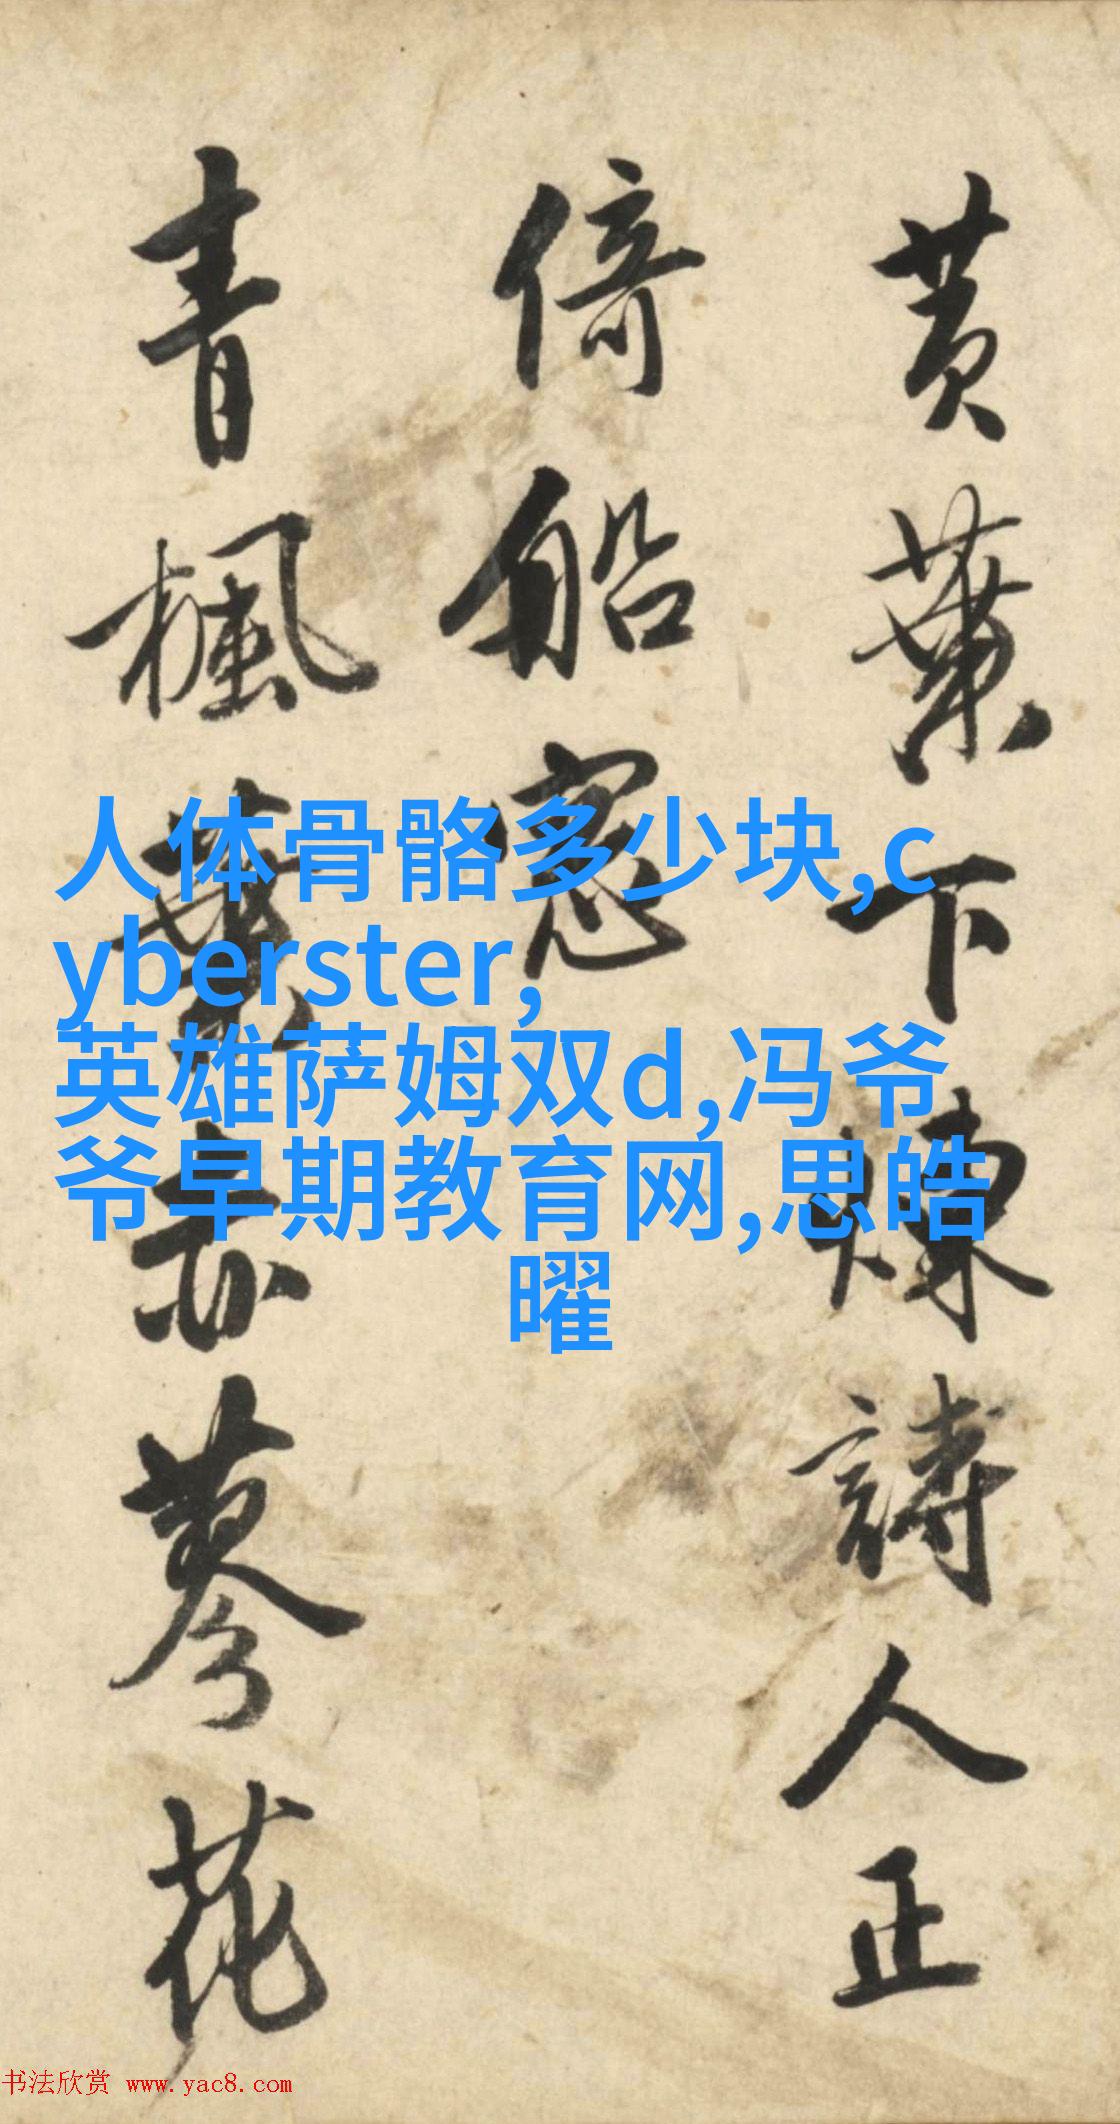 黄葉下煉詩人正
倚船窓
青楓葉赤蓼花
人体骨骼多少块,c
yberster,
英雄萨姆双d,冯爷
爷早期教育网,思皓
曜
书法欣赏 www.yac8.com